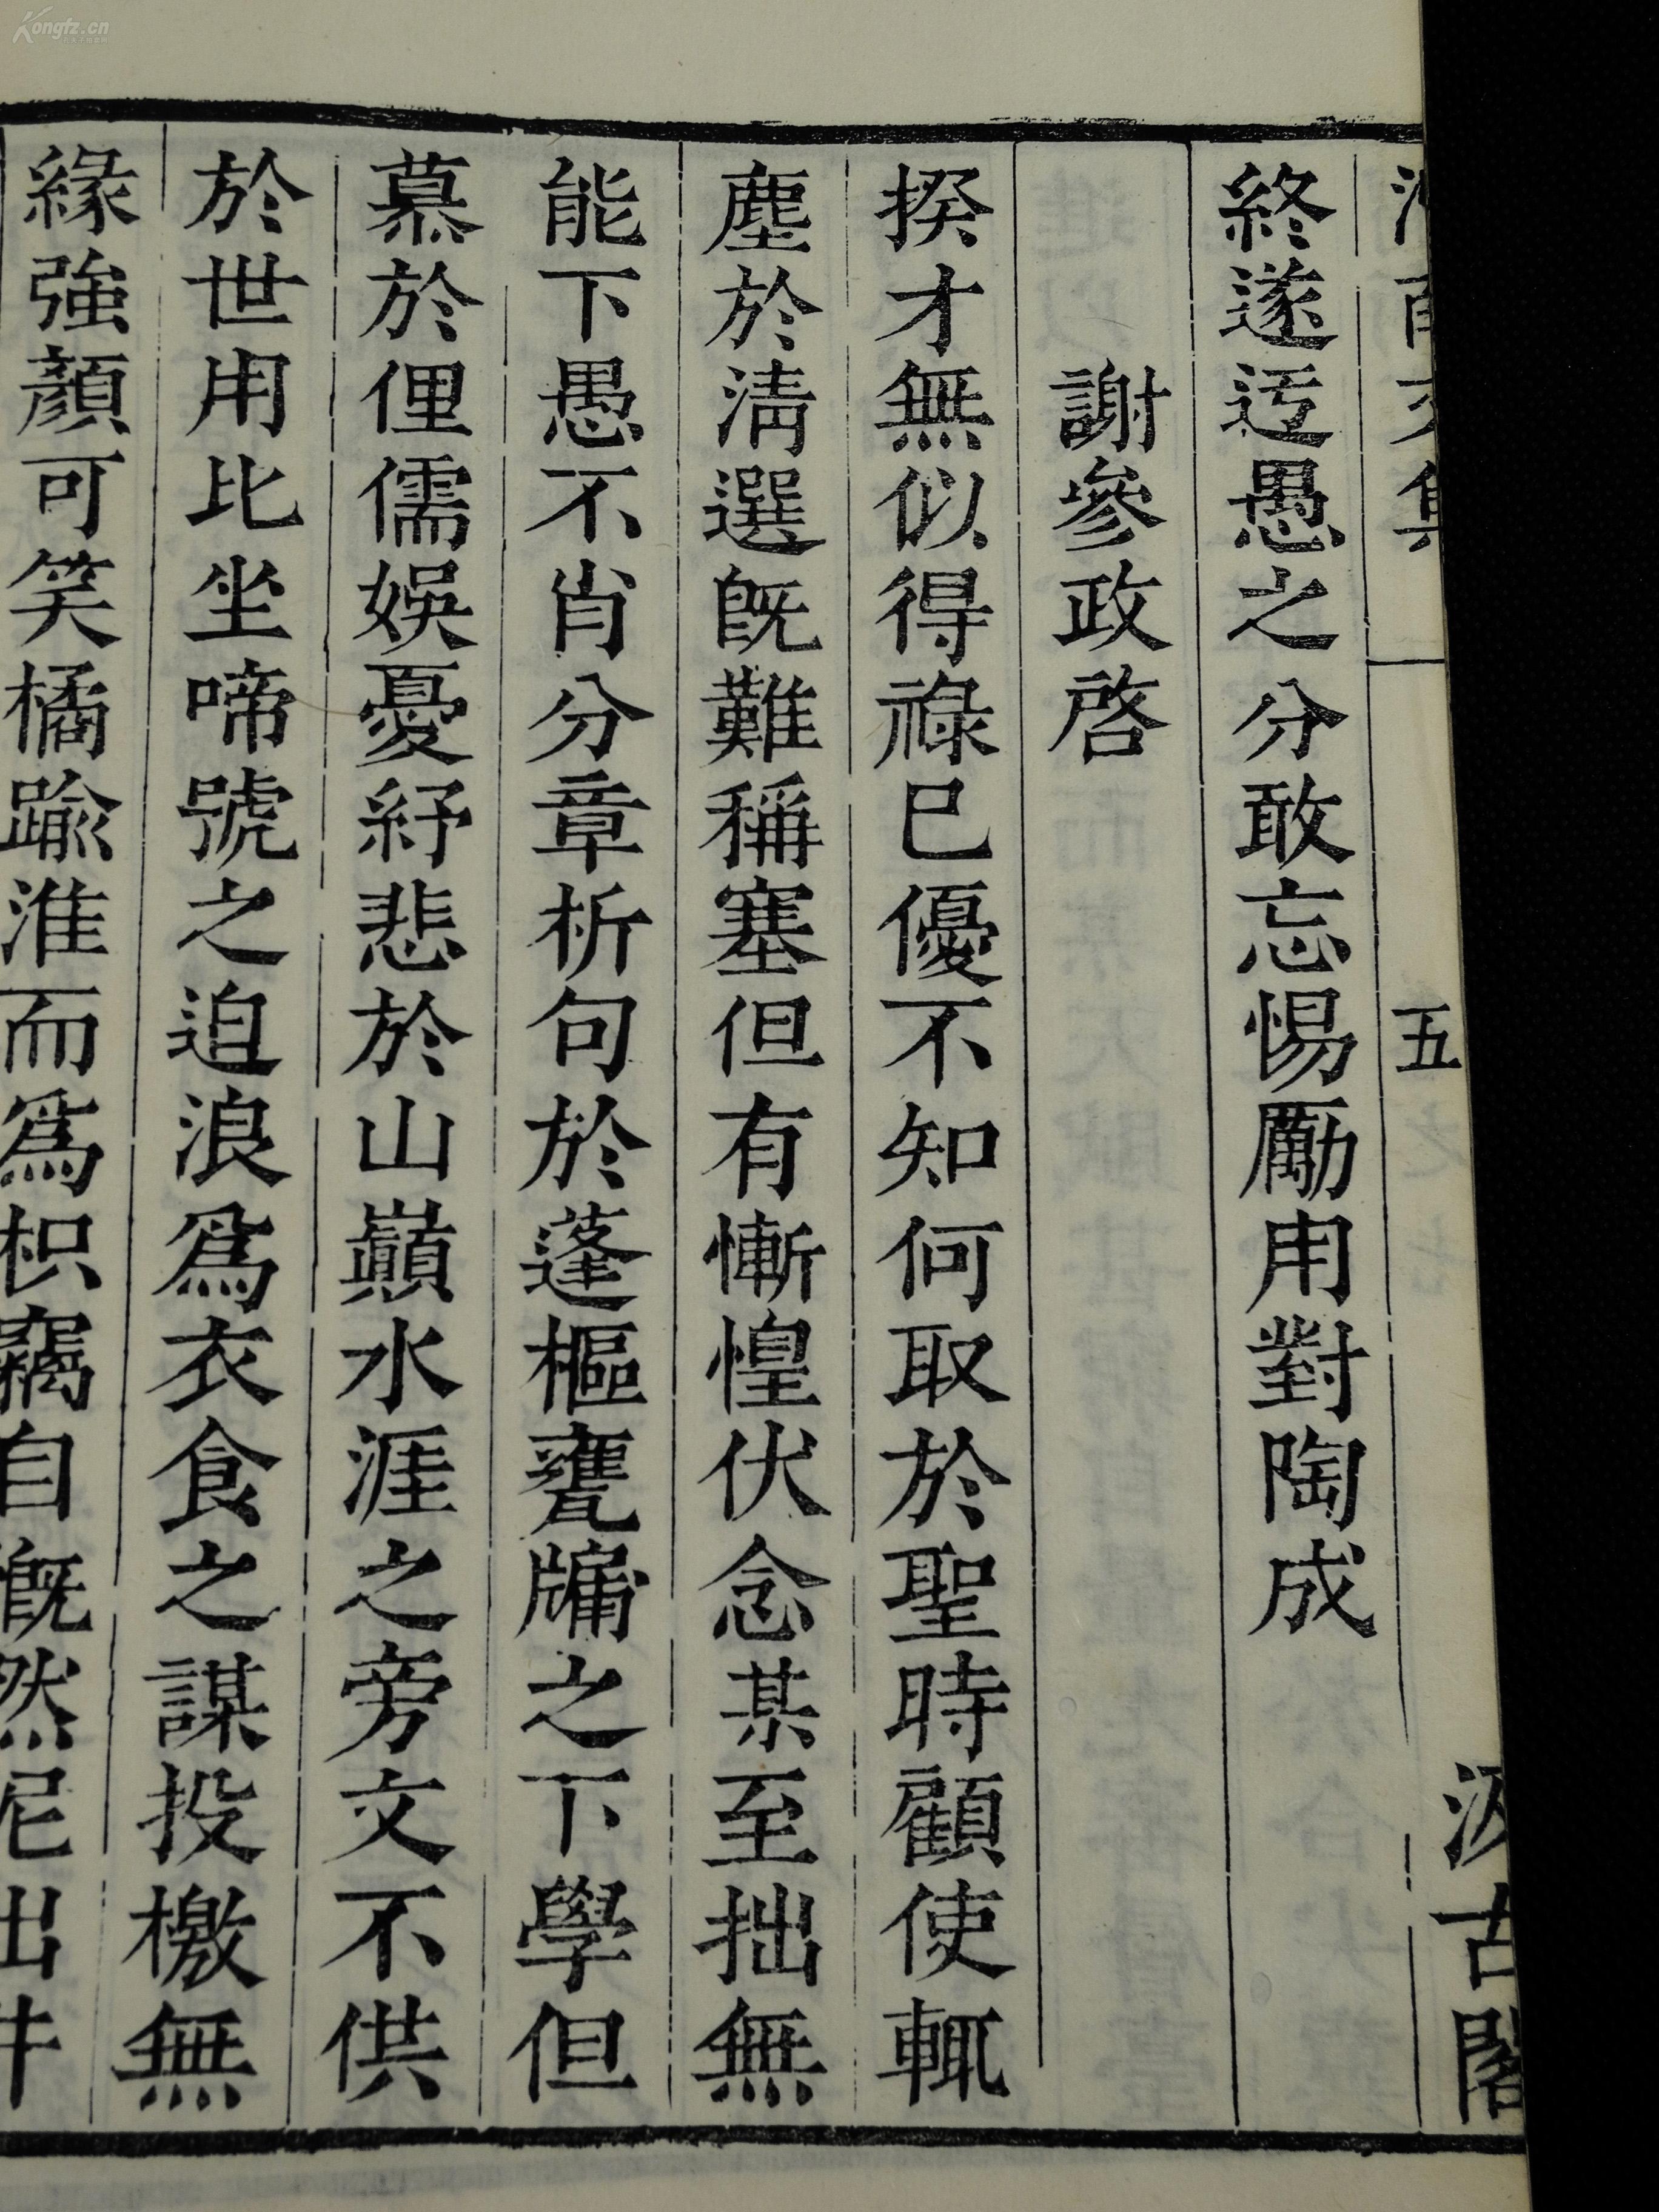 文集
五
汲古閣
終遂迃愚之分敢忘惕勵用對陶成
謝參政啓
揆才無似得祿已優不知何取於聖時顧使輒
塵於清選旣難稱塞但有慚惶伏念某至拙無
能下愚不肖分章析句於蓬樞甕牖之下學但
慕於俚儒娛憂紓悲於山巔水涯之旁文不供
於世用比坐啼號之迫浪爲衣食之謀投檄無
緣強顏可笑橘踰淮而爲枳竊自慨然尼出井
Kongfz.cn